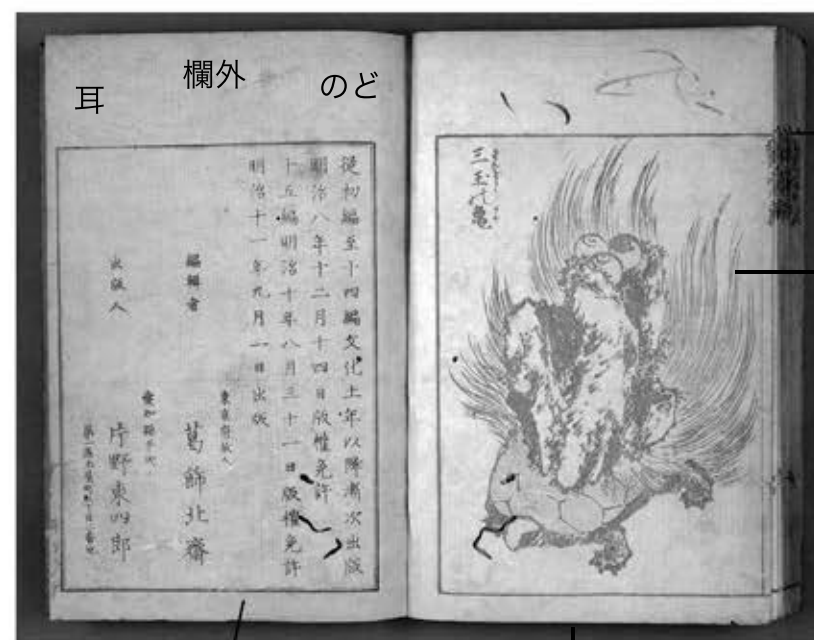 耳
欄外
のど
三玉の亀
從初編至十四編文化土年以降漸次出版
明治八年十二月十四日版權免許
十五編明治十年八月三十一日版權免許
明治十一年九月一日出版
東京府故人
編輯者
葛飾北齋
愛知縣平民
出版人
片野東四郎